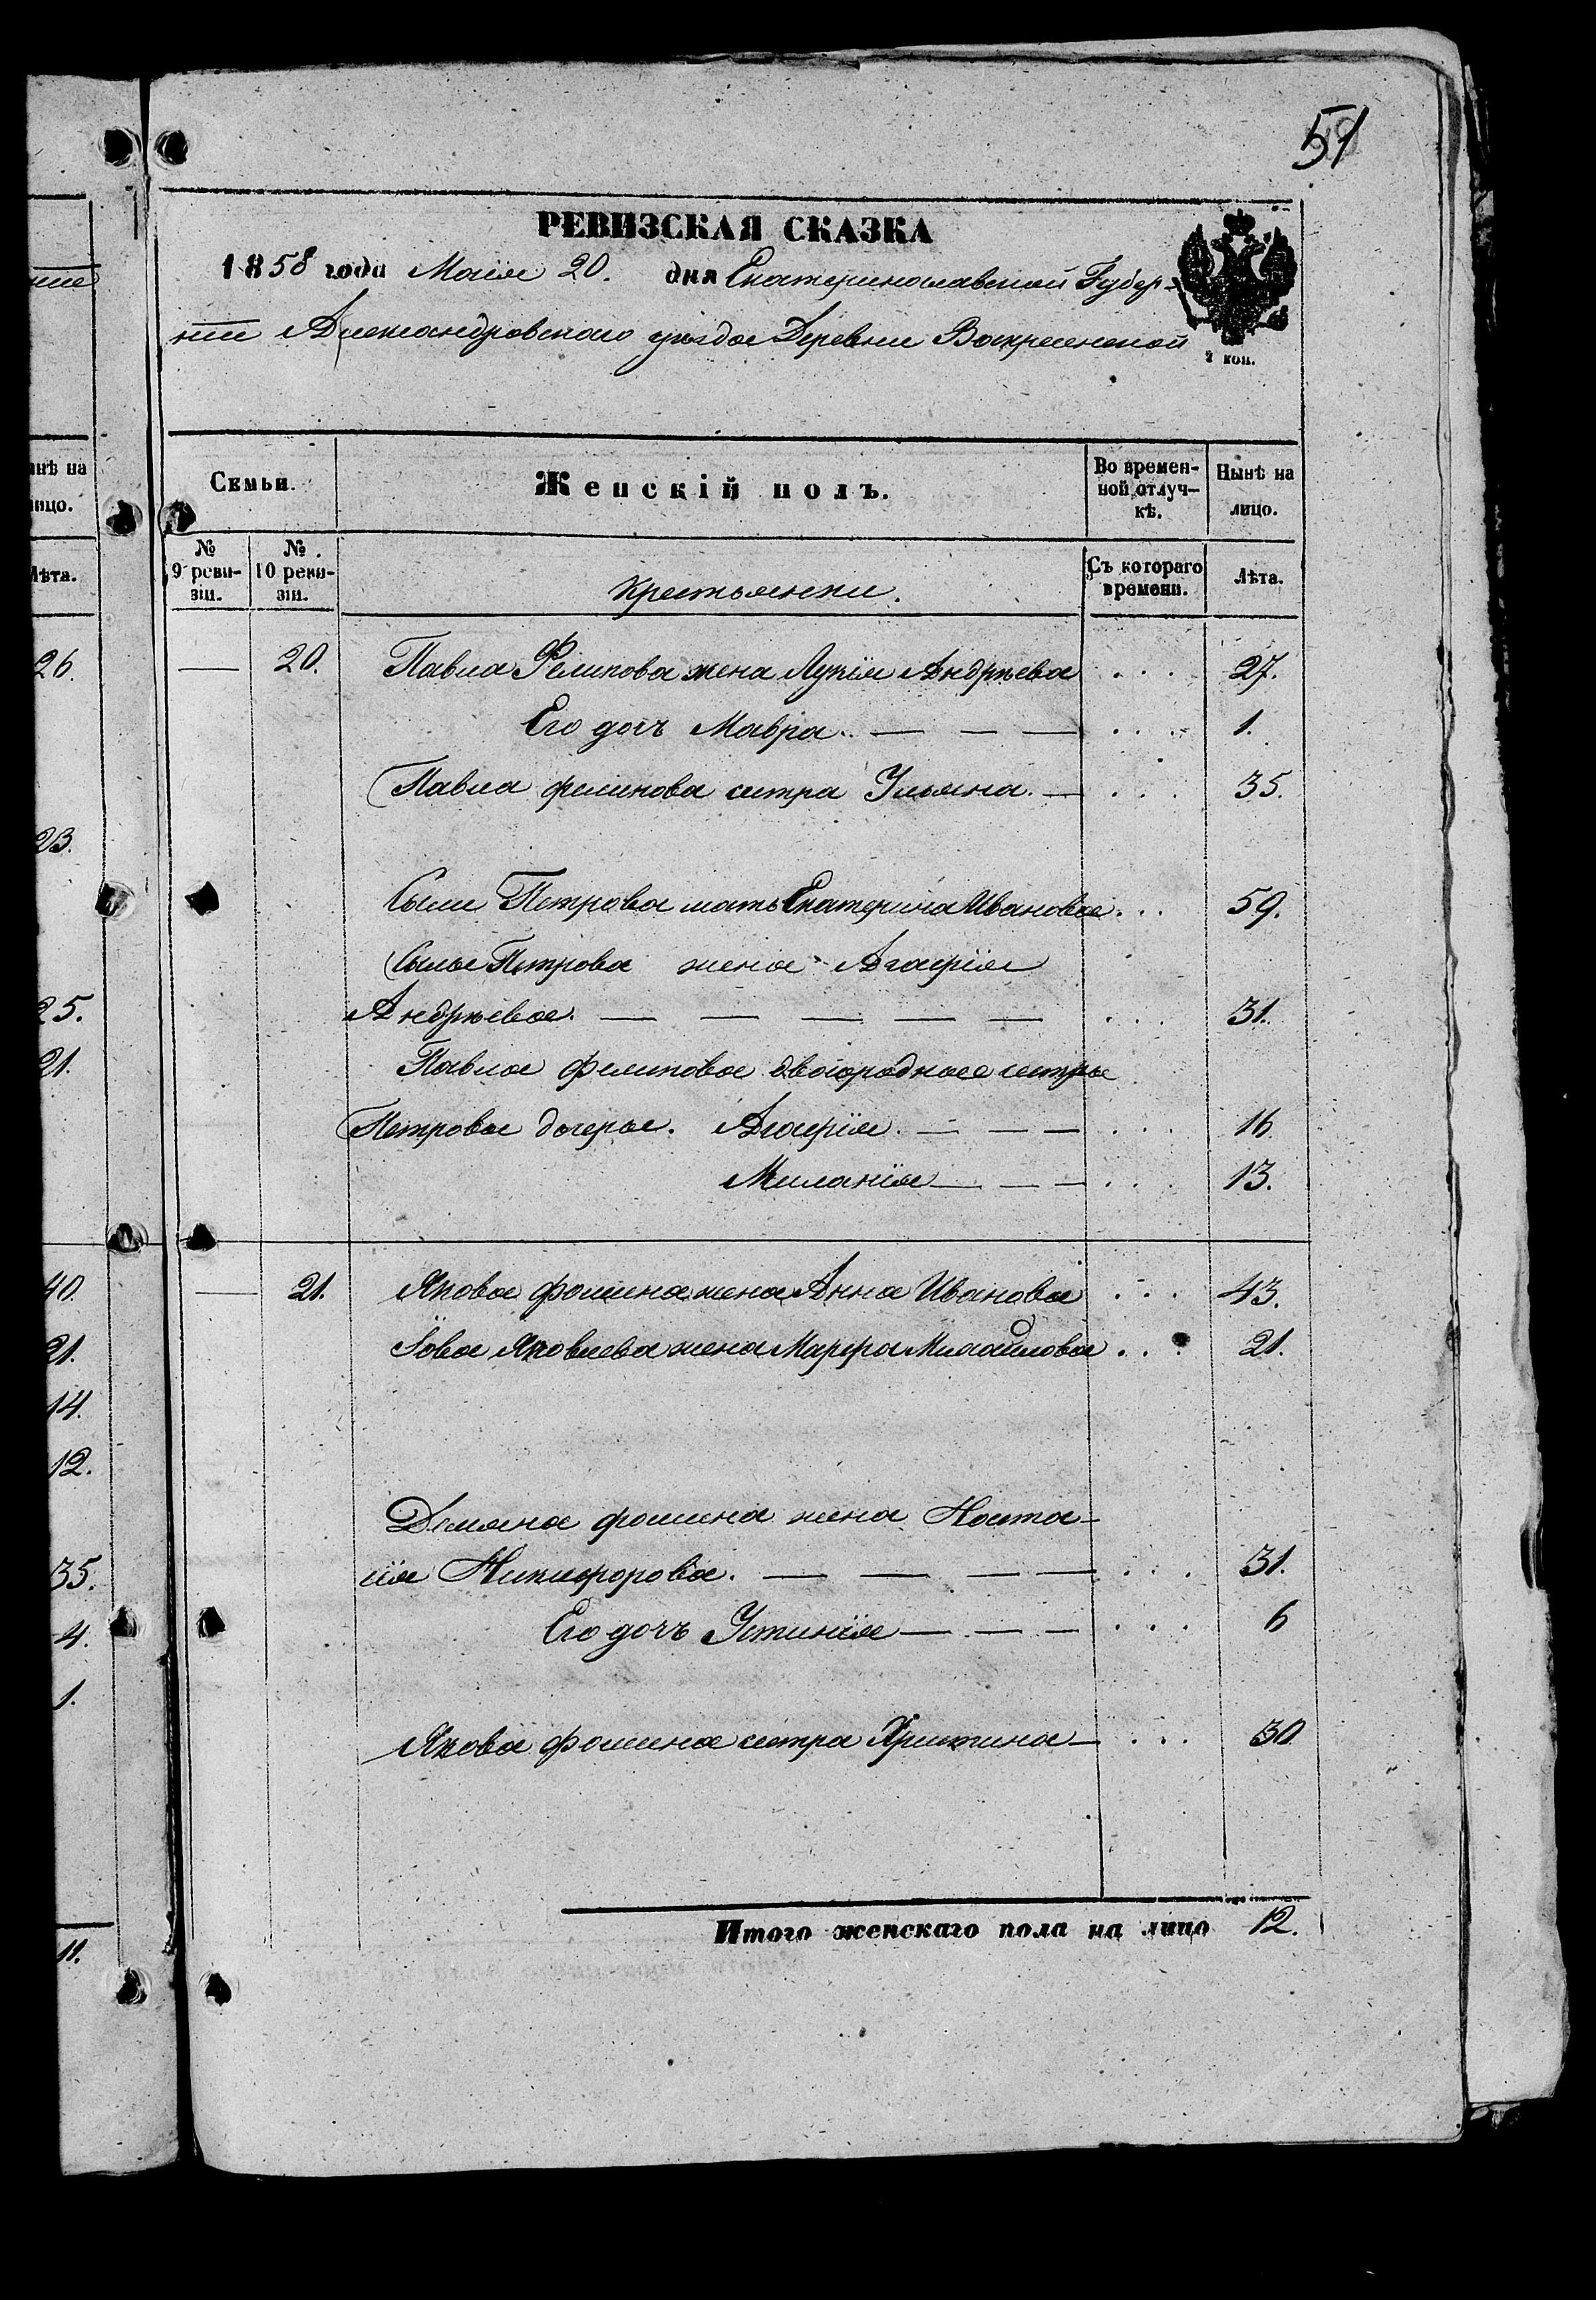 51
РЕВИЗСКАЯ СКАЗКА
1858 года Маія 20. дня Екатеринославской Губер-
ніи Александровскаго уѣзда Деревни Воскресенской
2 коп.
Семьи. Женскій полъ. Во времен-ной отлуч-кѣ. Нынѣ на лицо.
№ 9 реви-зіи. № 10 реви-зіи. Крестьянки. Съ котораго времени. Лѣта.
— 20. Павла Филипова жена Лукія Андрѣева . . . 27.
Его дочъ Мавра. — — — . . . 1.
Павла филипова сестра Ульяна. — . . . 35.
Петрова мать Екатерина Иванова . . . 59.
Петрова жена Агафія
Андрѣева. — — — — — . . . 31.
Павла филипова двоюродная сестры
Петрова дочеры. Агафія. — — — . . . 16.
Миланія — — — . . . 13.
— 21. Якова фомина жена Анна Иванова . . . 43.
Іова Яковлева жена Марфа Михайлова . . . 21.
Демяна фомина жена Наста-
сія Никифорова. — — — — . . . 31.
Его дочъ Устинія — — — . . . 6
Якова фомина сестра Христина — . . . 30
Итого женскаго пола на лицо 12.
ніе
нѣ на
лицо.
Лѣта.
26.
23.
25.
21.
40.
21.
14.
12.
35.
4.
1.
11.